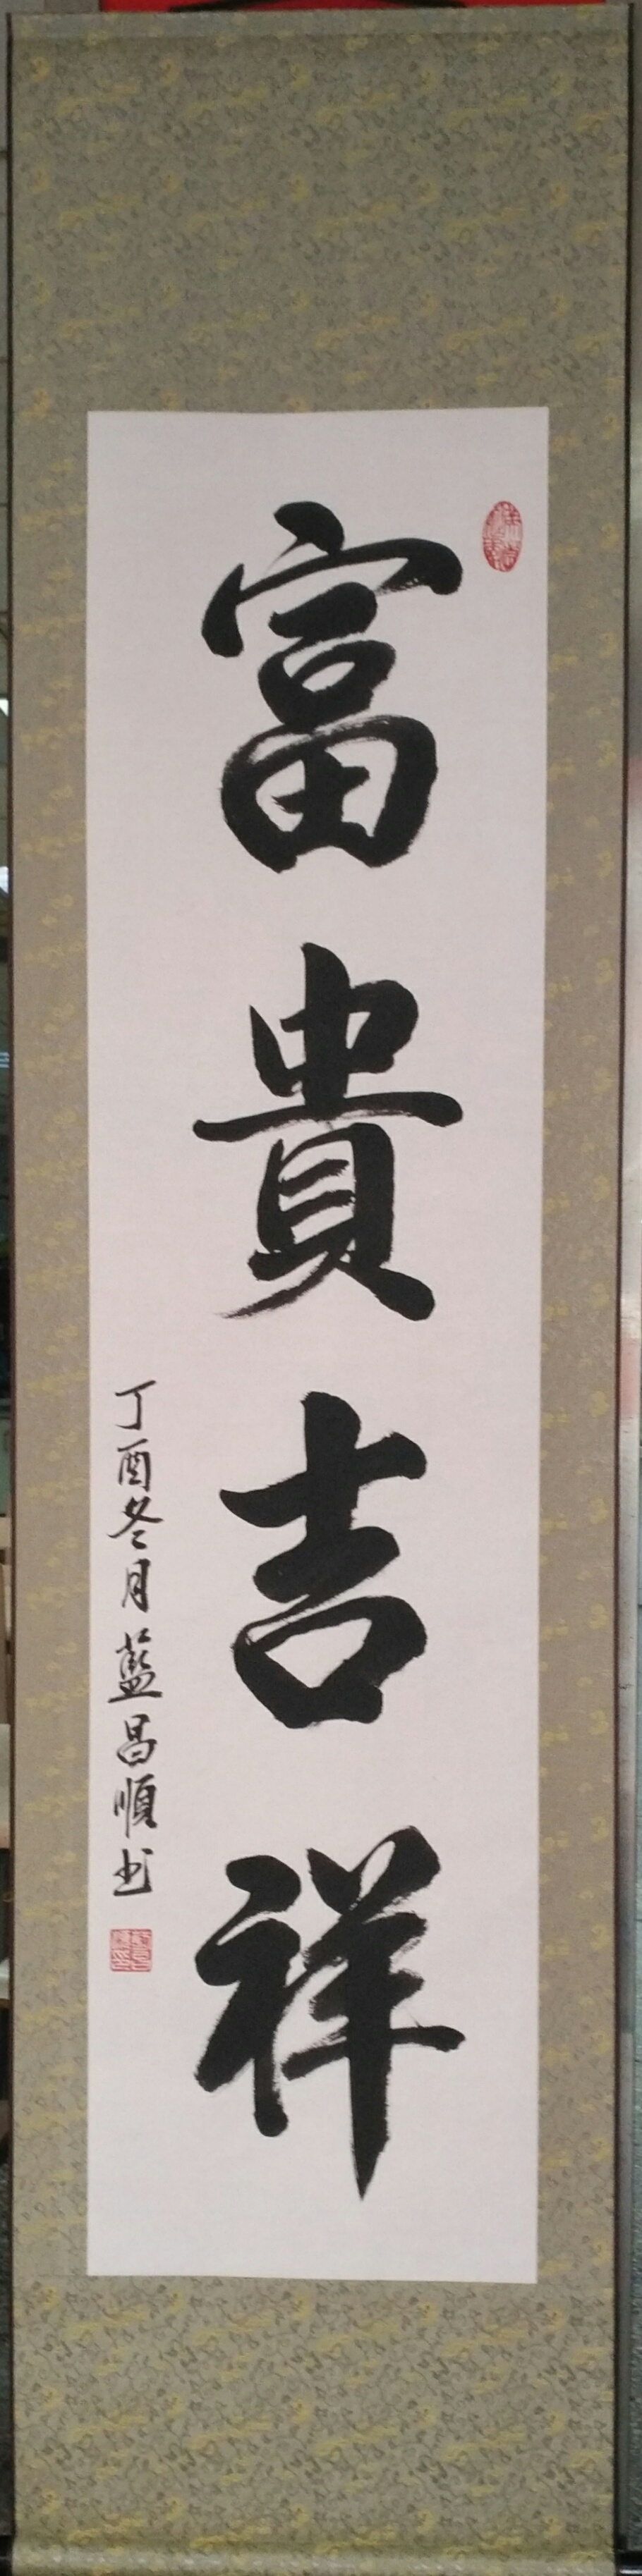 富貴吉祥
丁酉冬月藍昌順书